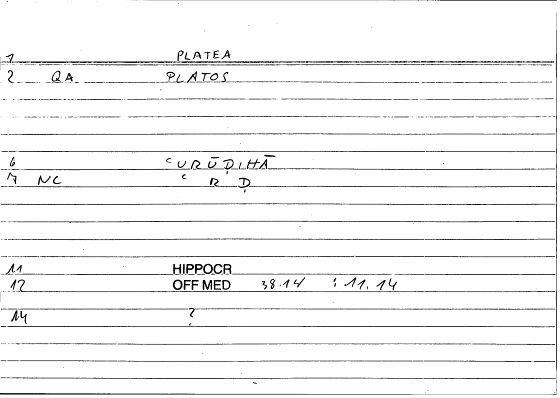 1 PLATEA
2 QA PLATOS
6 ʿURŪḌIHĀ
7 NC ʿRḌ
11 HIPPOCR
12 OFF MED 38.14 : 11.14
14 ?